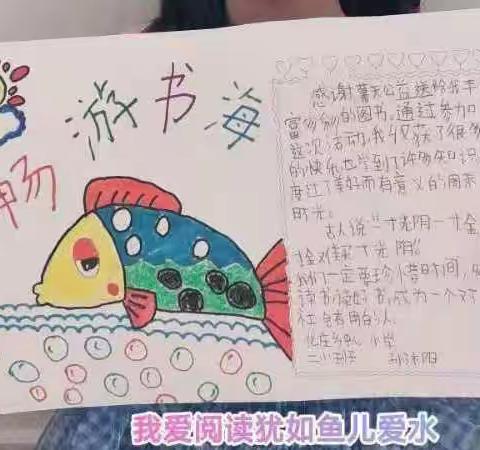 畅游书海
感谢蒙天公益送给我丰
富多彩的图书,通过参加
这次活动,我收获了很多
的快乐也学到了许多知识
度过了美好而有意义的周末
时光。
古人说“一寸光阴一寸金
寸金难买寸光阴”
我们一定要珍惜时间,
读书读好书,成为一个对
社会有用的人。
小学
我爱阅读犹如鱼儿爱水